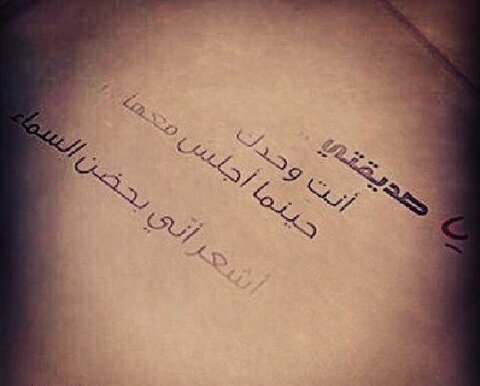 صديقتي ..
أنت وحدك
حينما أجلس معها ..
أشعر أنّي بحضن السماء